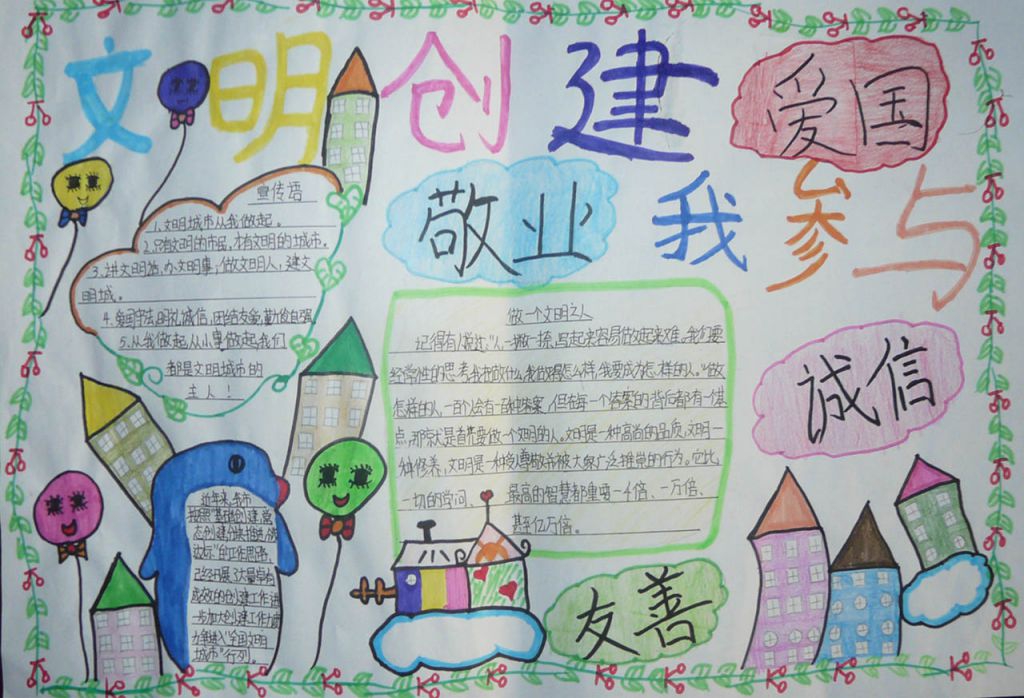 文明创建
爱国
我参与
敬业
诚信
友善
宣传语
1.文明城市从我做起。
2.只有文明的市民，才有文明的城市。
3.讲文明话，办文明事，做文明人，建文
明城。
4.爱国守法，明礼诚信，团结友爱，勤俭自强
5.从我做起，从小事做起，我们
都是文明城市的
主人！
做一个文明之人
记得有人说过："人，一撇一捺，写起来容易做起来难。我们要
经常性的思考，我在做什么，我做得怎么样，我要成为怎样的人。"做
怎样的人，一百个人会有一百种答案，但在每一个答案的背后都有一个基
点，那就是首先要做一个文明的人。文明是一种高尚的品质，文明一
种修养，文明是一种受人尊敬并被大家广泛推崇的行为。它比
一切的学问、最高的智慧都重要一千倍、一万倍、
甚至亿万倍。
近年来，我市
按照"基础创建，常
态创建分块推进，
达标"的工作思路，
已经开展了大量卓有
成效的创建工作，进
一步加大创建工作力度
力争进入"全国文明
城市"行列。